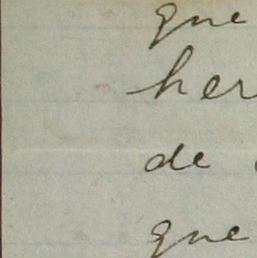 que
her
de
que